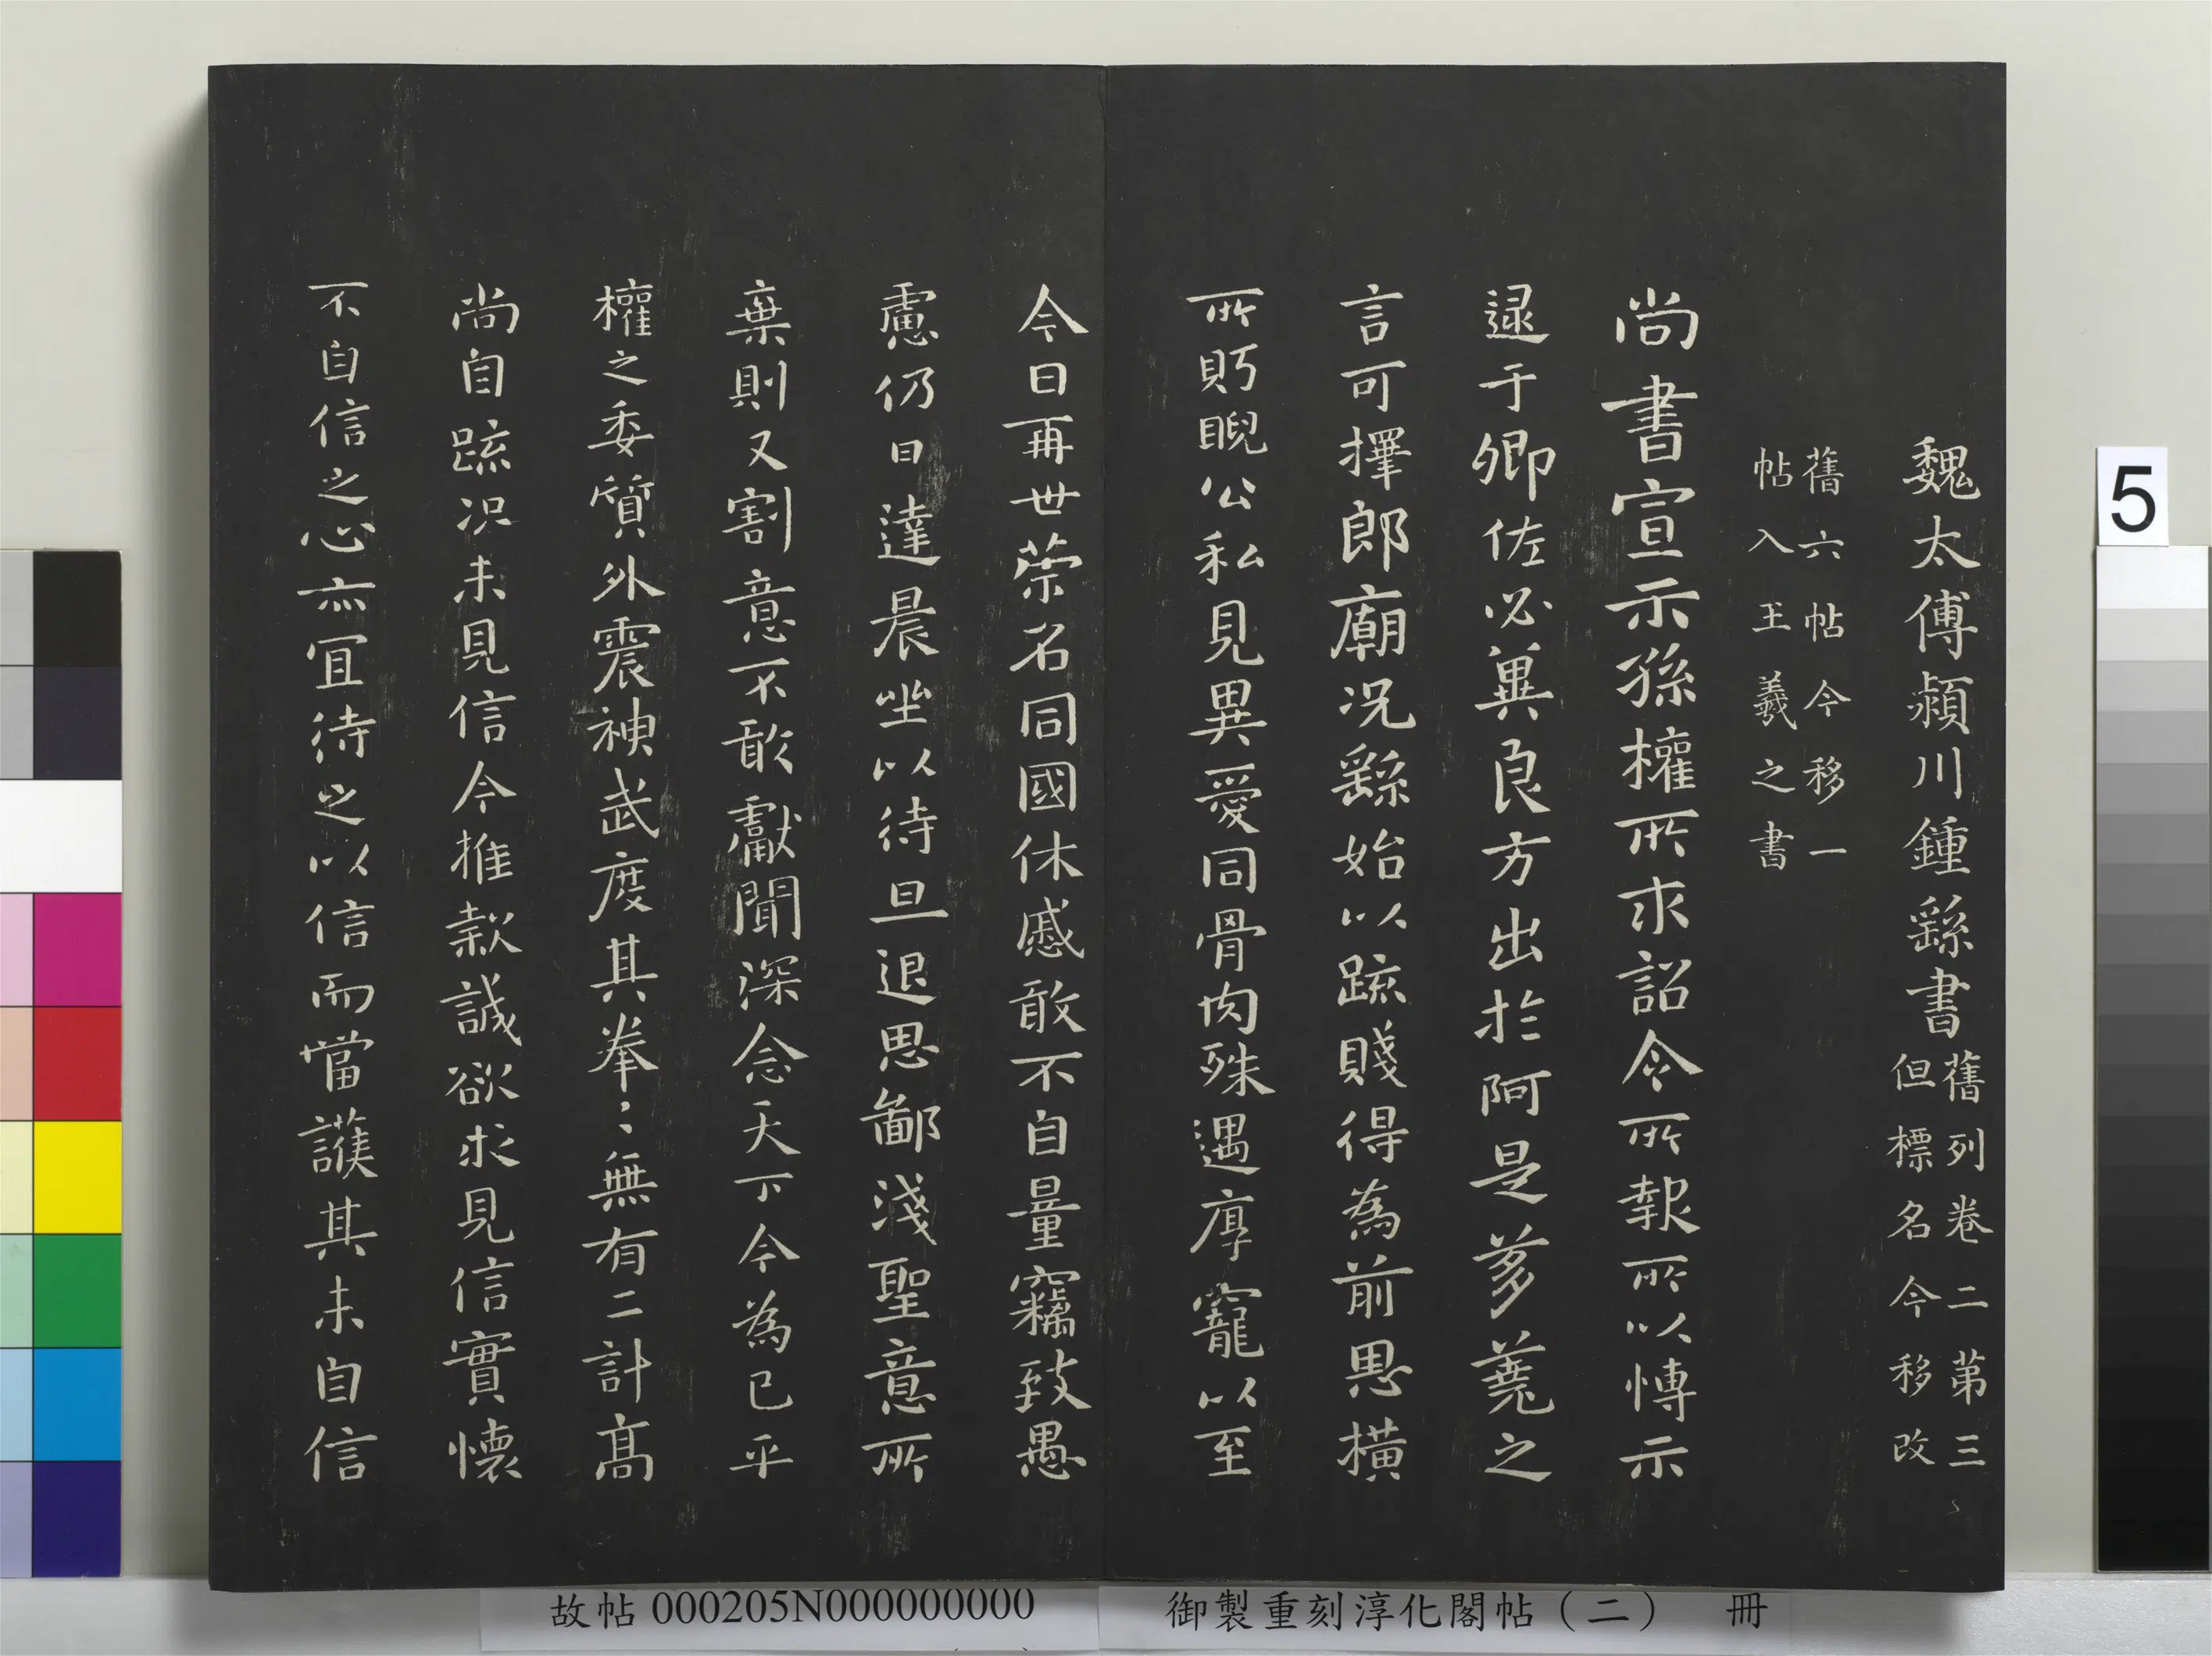 魏太傅潁川鍾繇書
舊列卷二第三
但標名今移改
舊六帖今移一
帖入王羲之書
尚書宣示孫權所求詔令所報所以博示
逯于卿佐必冀良方出於阿是芻蕘之
言可擇郎廟況繇始以疏賤得為前恩橫
所眄睨公私見異愛同骨肉殊遇厚寵以至
今日再世榮名同國休慼敢不自量竊致愚
慮仍日達晨坐以待旦退思鄙淺聖意所
棄則又割意不敢獻聞深念天下今為已平
權之委質外震神武度其拳〻無有二計高
尚自疏況未見信今推款誠欲求見信實懷
不自信之心亦宜待之以信而當護其未自信
5
故帖000205N000000000
御製重刻淳化閣帖（二） 冊